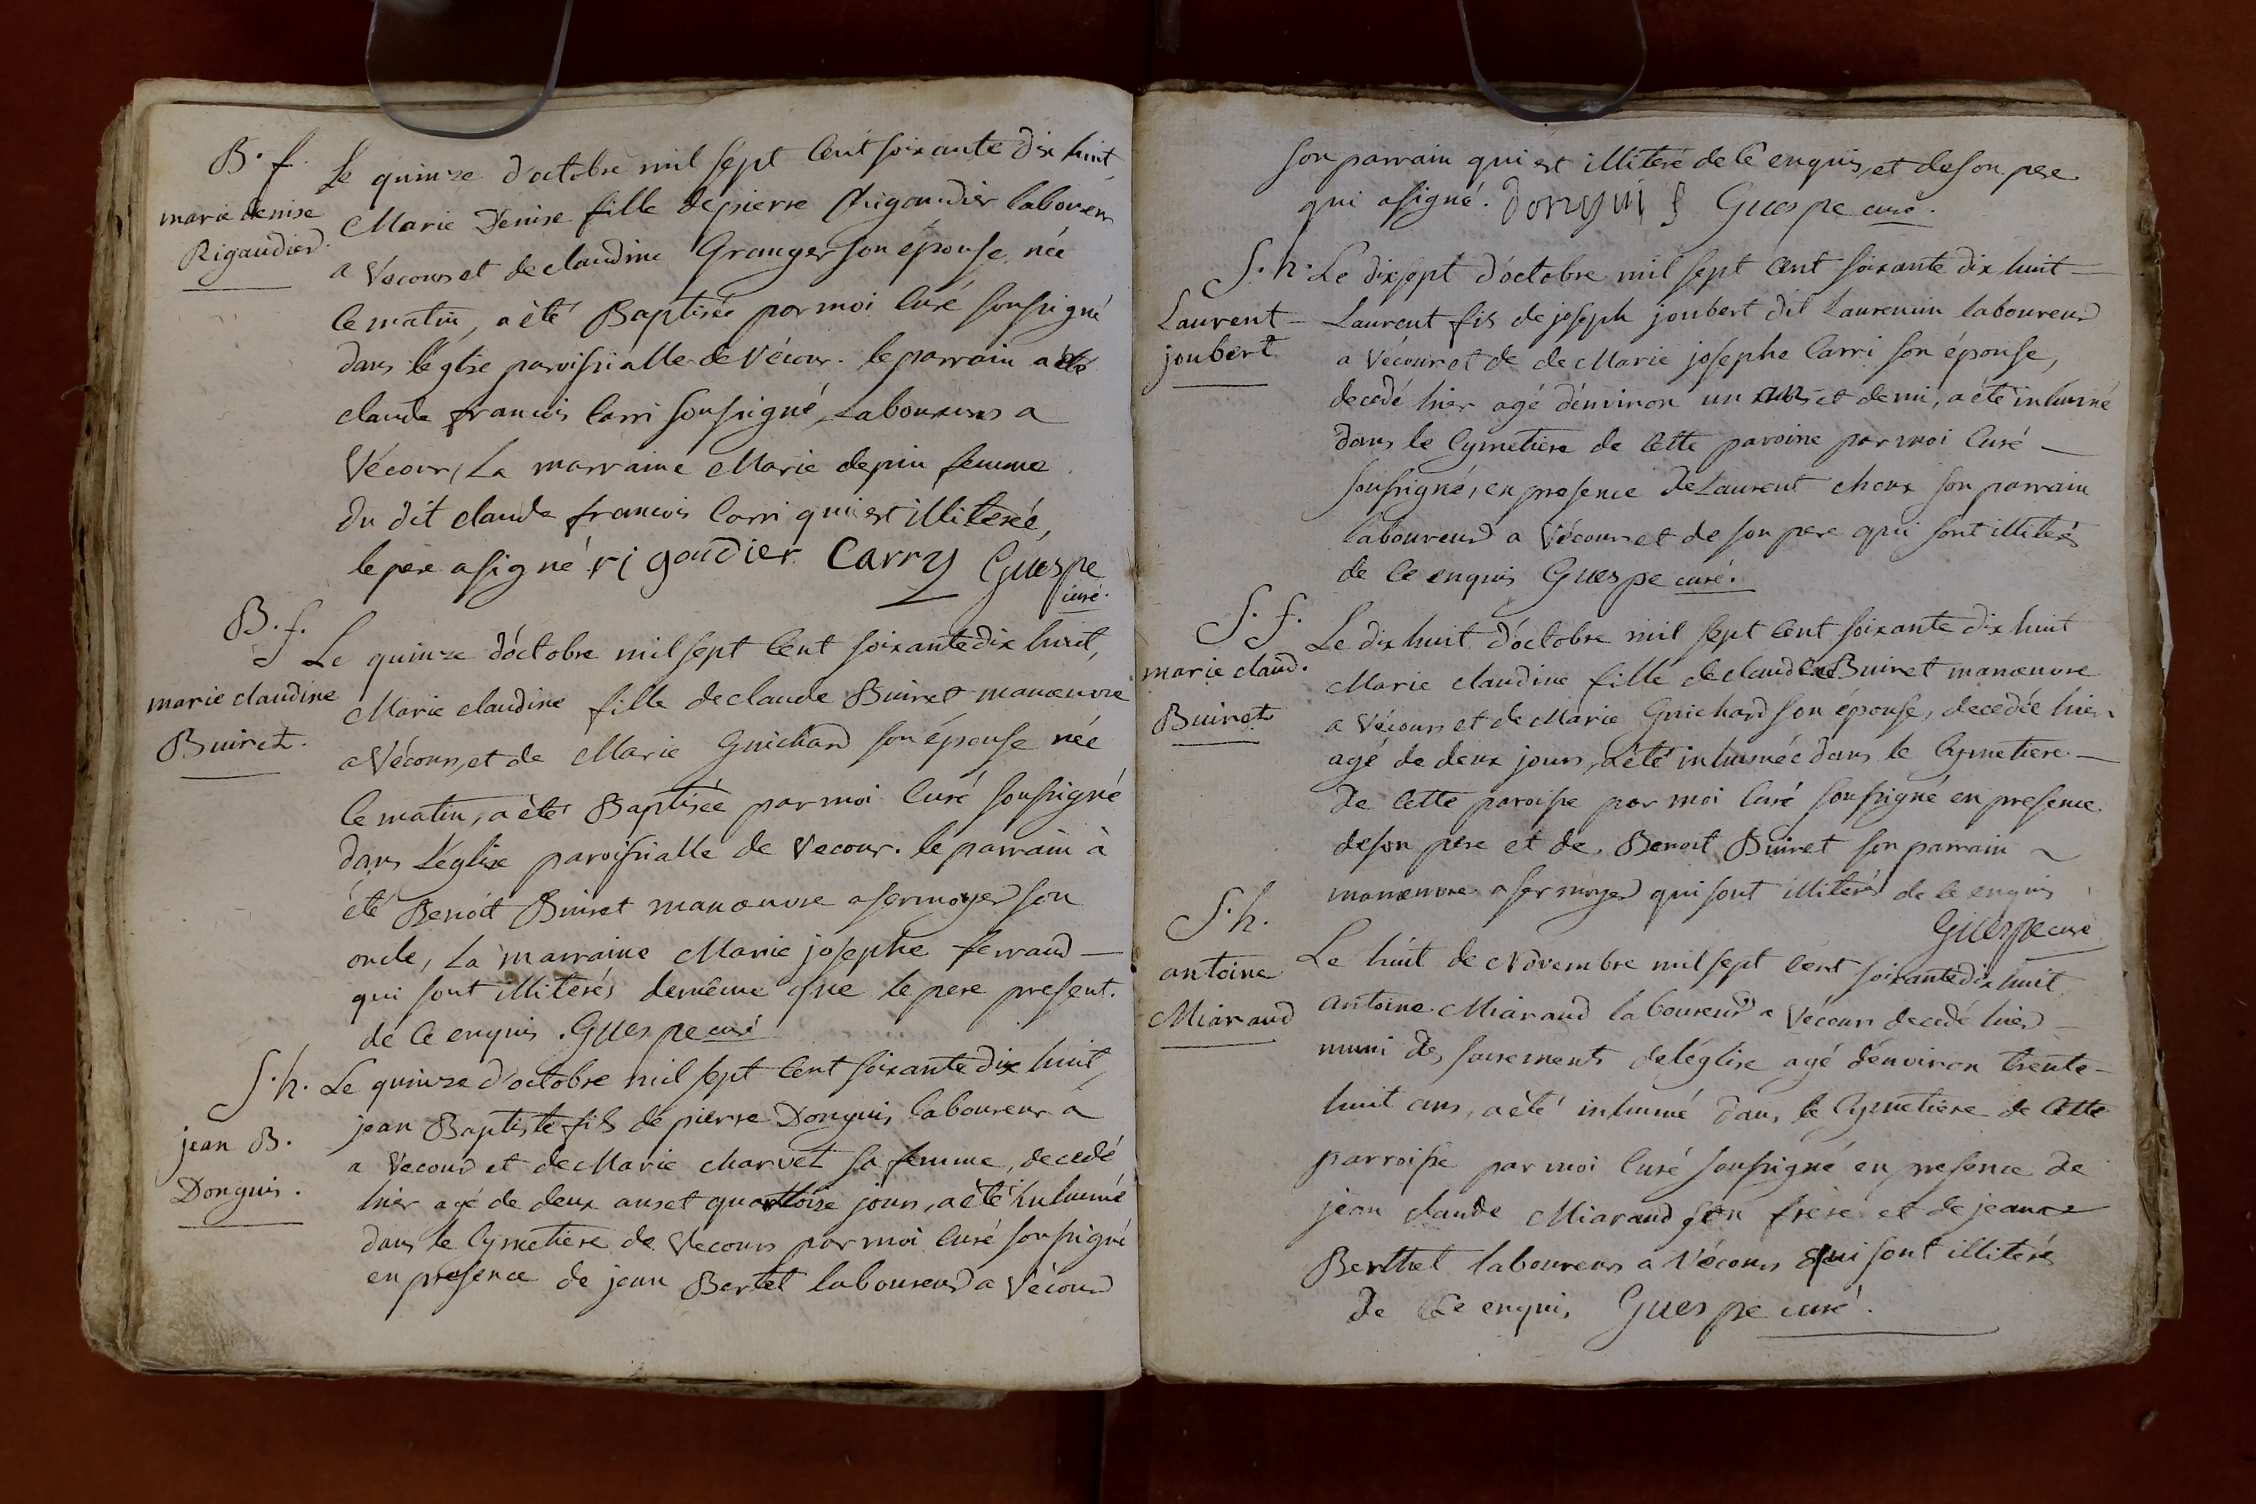 B. f.
marie denise
Rigaudier.
Le quinze d'octobre mil sept cent soixante dix huit
Marie Denise fille de pierre Rigaudier laboureur
a Vecours et de claudine Granger son épouse née
ce matin, a été Baptisée par moi curé soussigné
dans léglise paroissialle de Vécour. le parrain a été
claude francois Carri soussigné, Laboureur a
Vécour, La marraine Marie depin femme
du dit claude francois Carri qui est illiterée,
le pere a signé rigaudier Carry Guespe
curé.
B. f.
marie claudine
Buiret.
Le quinze d'octobre mil sept cent soixante dix huit,
Marie claudine fille de claude Buiret manœuvre
a Vécours, et de Marie Guichard son épouse née
ce matin, a été Baptisée par moi curé soussigné
dans L'église paroissialle de Vecour. le parrain à
été Benoit Buiret manœuvre a sermoyer son
oncle, La marraine Marie josephe ferraud
qui sont illiterés de même que le pere present.
de ce enquis. Guespe curé
S. h.
jean B.
Donguis.
Le quinze d'octobre mil sept cent soixante dix huit,
jean Baptiste fils de pierre Donguis laboureur a
a Vecour et de Marie Charvet sa femme, decedé
hier agé de deux ans et quattorze jours, a été inhumé
dans le Cymetiere de Vecours par moi Curé soussigné
en presence de jean Bertet laboureur a Vécour
son parrain qui est illiteré de ce enquis, et de son pere
qui a signé. donguis Guespe curé.
S. h.
Laurent
joubert
Le dix sept d'octobre mil sept cent soixante dix huit
Laurent fils de joseph joubert dit Laurencin laboureur
a Vécour et de de Marie josephe Carri son épouse,
decedé hier agé d'environ un ans et demi, a été inhumé
dans le Cymetiere de cette paroine par moi Curé
soussigné, en presence de Laurent choux son parrain
laboureur a Vécours et de son pere qui sont illiterés
de ce enquis Guespe curé.
S. f.
marie claud.
Buiret
Le dix huit d'octobre mil sept cent soixante dix huit
Marie claudine fille de claude Buiret manœuvre
a Vécours et de Marie Guichard son épouse, decedée hier
agé de deux jours, a été inhumée dans le Cymetiere
de cette paroisse par moi Curé soussigné en presence
de son pere et de Benoit Buiret son parrain
manœuvre a sermoyer qui sont illiterés de ce enquis
Guespe curé
S. h.
antoine
Miaraud
Le huit de Novembre mil sept cent soixante dix huit
antoine Miaraud laboureur a Vécours decedé hier
muni des sacrements de léglise agé d'environ trente
huit ans, a été inhumé dans le Cymetiere de cette
parroisse par moi Curé soussigné en presence de
jean claude Miaraud son frere et de jean
Berthet laboureurs a Vécours qui sont illiterés
de ce enquis Guespe curé.